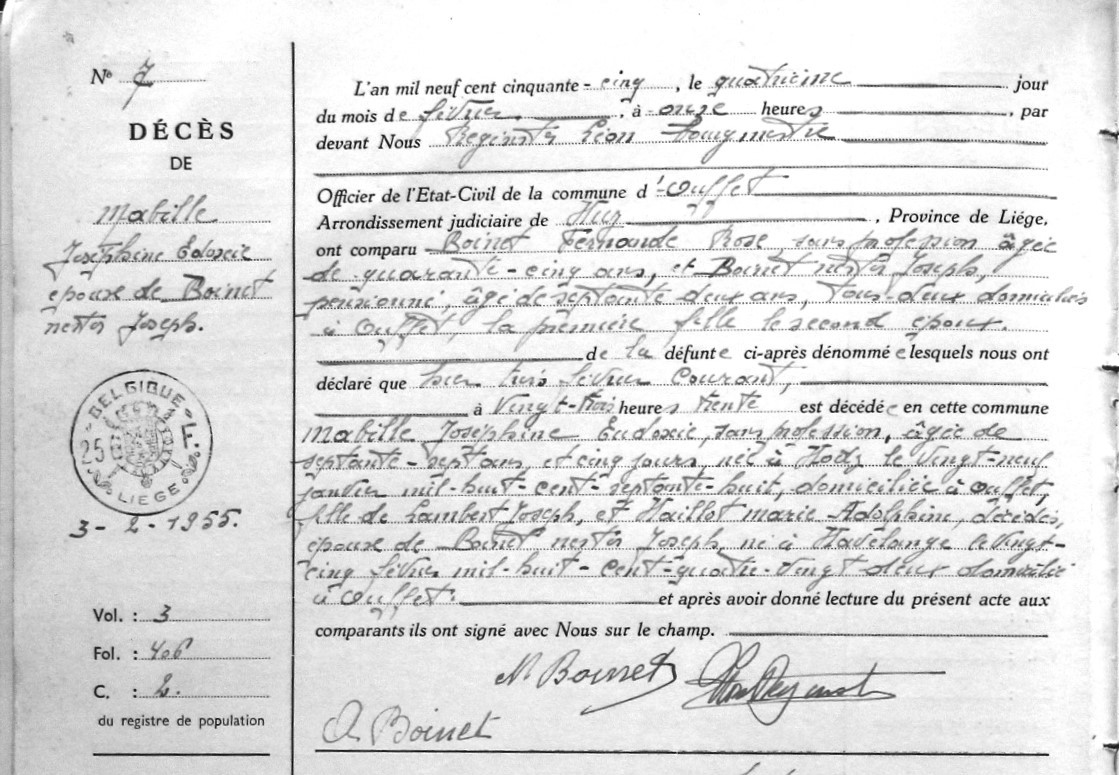 N° 7
DÉCÈS
DE
Mabille
Joséphine Edoxie
épouse de Boinet
Nestor Joseph.
BELGIQUE
25 F.
LIEGE
3-2-1955.
Vol. : 3
Fol. : 406
C. : 2.
du registre de population
L'an mil neuf cent cinquante-cinq, le quatrième jour
du mois de février, à onze heures, par
devant Nous Léon Bourgmestre
Officier de l'Etat-Civil de la commune d'Ouffet
Arrondissement judiciaire de Huy, Province de Liége,
ont comparu Boinet Fernande Rose, sans profession âgée
de quarante-cinq ans, et Boinet Nestor Joseph,
pensionné, âgé de septante deux ans, tous-deux domiciliés
à Ouffet, la première fille le second époux.
de la défunte ci-après dénommée lesquels nous ont
déclaré que hier trois février courant,
à vingt-trois heures trente est décédée en cette commune
Mabille Joséphine Eudoxie, sans profession, âgée de
septante-sept ans, et cinq jours né à Hody le vingt-neuf
janvier mil-huit-cent-septante-huit, domiciliée à Ouffet,
fille de Lambert Joseph, et Haillot Marie Adolphine, décédés,
épouse de Boinet Nestor Joseph, né à Havelange le vingt-
cinq février mil-huit-cent-quatre-vingt deux domicilié
à Ouffet. et après avoir donné lecture du présent acte aux
comparants ils ont signé avec Nous sur le champ.
N Boinet
Boinet